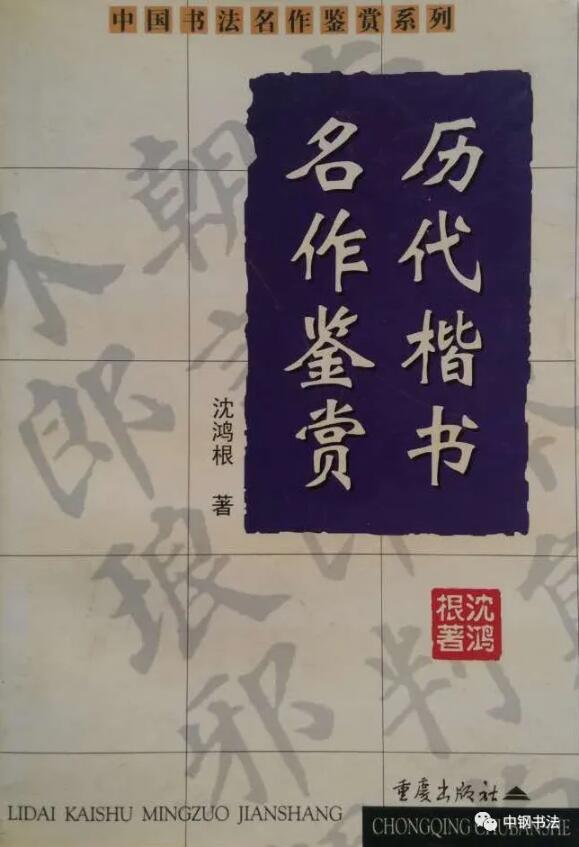 中国书法名作鉴赏系列
历代楷书
名作鉴赏
沈鸿根 著
沈鸿
根著
朝
郎
琅
邪
判
重庆出版社
LIDAI KAISHU MINGZUO JIANSHANG
CHONGQING CHUBANSHE
中钢书法